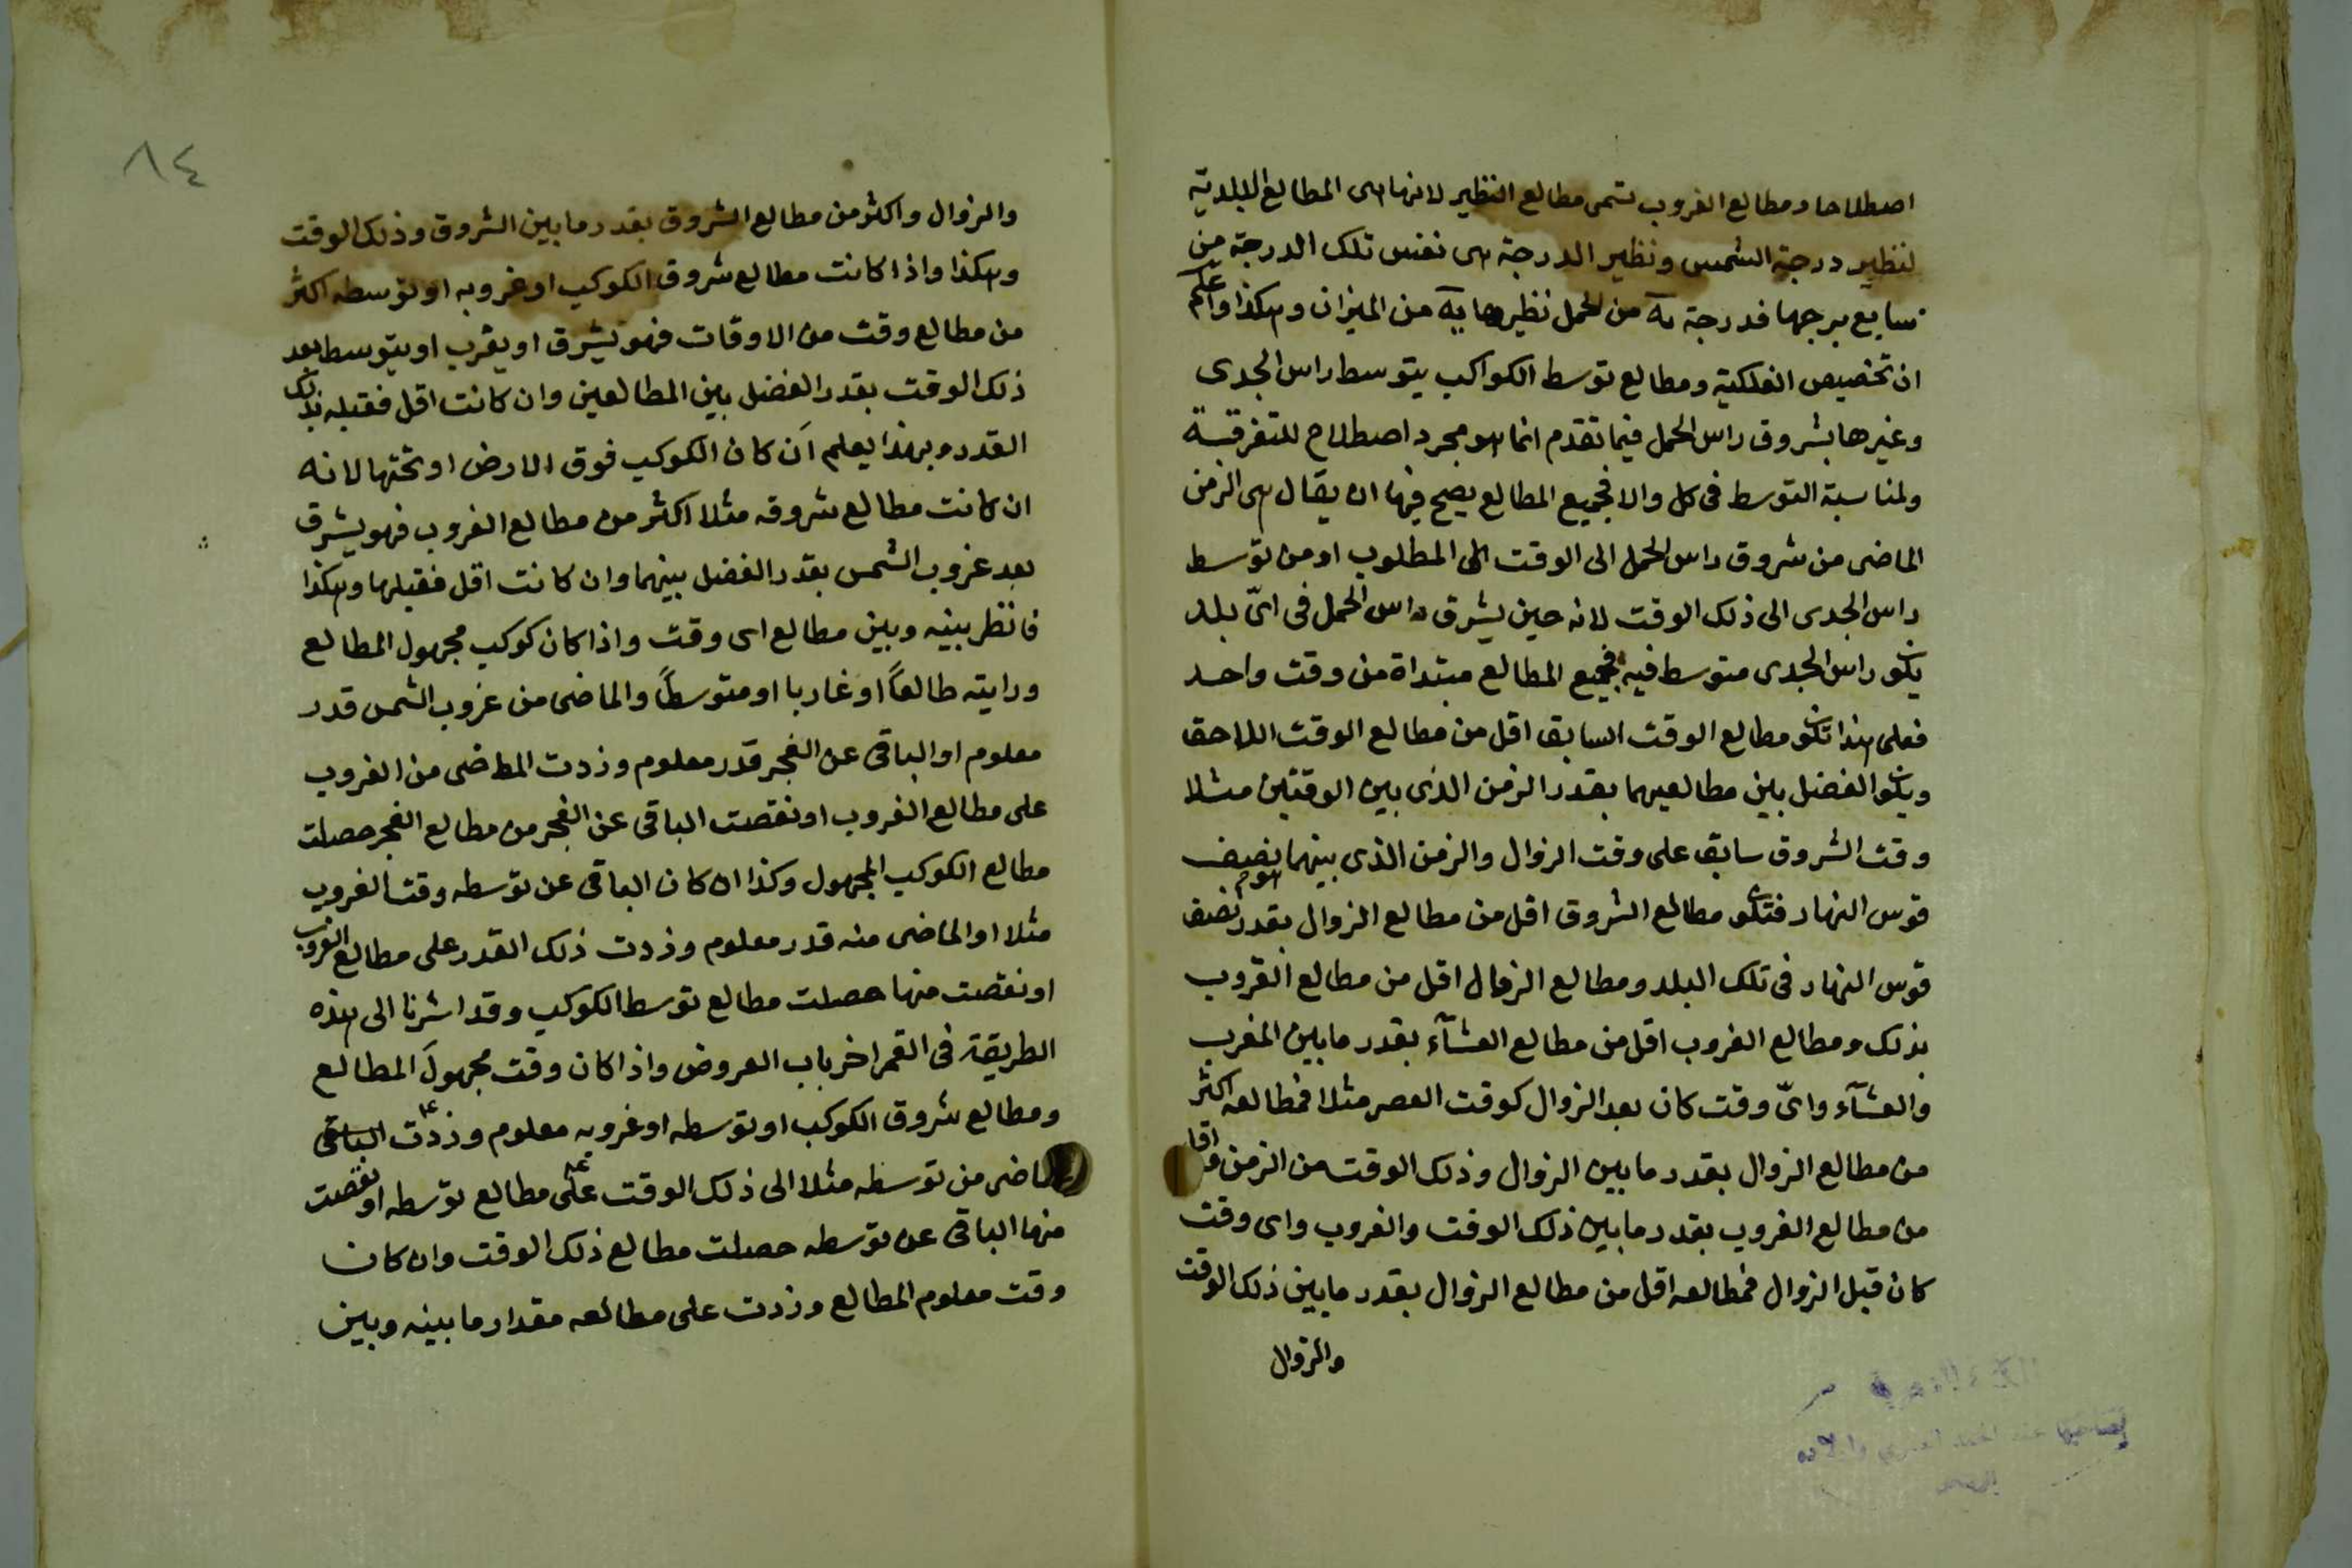 اصطلاحا ومطالع الغروب تسمى مطالع النظير لانها هى المطالع البلدية
لنظير درجة الشمس ونظير الدرجة هى نفس تلك الدرجة من
سابع برجها فدرجة يه من الحمل نظيرها يه من الميزان وهكذا واعلم
ان تخصيص الفلكية ومطالع توسط الكواكب بتوسط راس الجدى
وغيرها بشروق راس الحمل فيما تقدم انما هو مجرد اصطلاح للتفرقة
ولمناسبة التوسط فى كل والا فجميع المطالع يصح فيها ان يقال هى الزمن
الماضى من شروق راس الحمل الى الوقت المطلوب او من توسط
راس الجدى الى ذلك الوقت لانه حين يشرق راس الحمل فى اىّ بلد
يكون راس الجدى متوسط فيه فجميع المطالع مبتداة من وقت واحد
فعلى هذا تكون مطالع الوقت السابق اقل من مطالع الوقت اللاحق
ويكون الفضل بين مطالعيهما بقدر الزمن الذى بين الوقتين مثلا
وقت الشروق سابق على وقت الزوال والزمن الذى بينهما نصف
قوس النهار فتكون مطالع الشروق اقل من مطالع الزوال بقدر نصف
قوس النهار فى تلك البلد ومطالع الزوال اقل من مطالع الغروب
بذلك ومطالع الغروب اقل من مطالع العشآء بقدر ما بين المغرب
والعشآء واىّ وقت كان بعد الزوال كوقت العصر مثلا فمطالعه اكثر
من مطالع الزوال بقدر ما بين الزوال وذلك الوقت من الزمن واقل
من مطالع الغروب بقدر ما بين ذلك الوقت والغروب واى وقت
كان قبل الزوال فمطالعه اقل من مطالع الزوال بقدر ما بين ذلك الوقت
والزوال
٨٤
والزوال واكثر من مطالع الشروق بقدر ما بين الشروق وذلك الوقت
وهكذا واذا كانت مطالع شروق الكوكب او غروبه او توسطه اكثر
من مطالع وقت من الاوقات فهو يشرق او يغرب او يتوسط بعد
ذلك الوقت بقدر الفضل بين المطالعين وان كانت اقل فقبله بذلك
القدر وبهذا يعلم اَن كان الكوكب فوق الارض او تحتها لانه
ان كانت مطالع شروقه مثلا اكثر من مطالع الغروب فهو يشرق
بعد غروب الشمس بقدر الفضل بينهما وان كانت اقل فقبلها وهكذا
فانظر بينه وبين مطالع اى وقت واذا كان كوكب مجهول المطالع
ورايته طالعاً او غاربا او متوسطاً والماضى من غروب الشمس قدر
معلوم او الباقى عن الفجر قدر معلوم وزدت الماضى من الغروب
على مطالع الغروب او نقصت الباقى عن الفجر من مطالع الفجر حصلت
مطالع الكوكب المجهول وكذا ان كان الباقى عن توسطه وقت الغروب
مثلا او الماضى منه قدر معلوم وزدت ذلك القدر على مطالع الغروب
او نقصت منها حصلت مطالع توسط الكوكب وقد اشرنا الى هذه
الطريقة فى القمر اخر باب العروض واذا كان وقت مجهولَ المطالع
ومطالع شروق الكوكب او توسطه او غروبه معلوم وزدت الباقى
الماضى من توسطه مثلا الى ذلك الوقت على مطالع توسطه او نقصت
منها الباقى عن توسطه حصلت مطالع ذلك الوقت وان كان
وقت معلوم المطالع وزدت على مطالعه مقدار ما بينه وبين